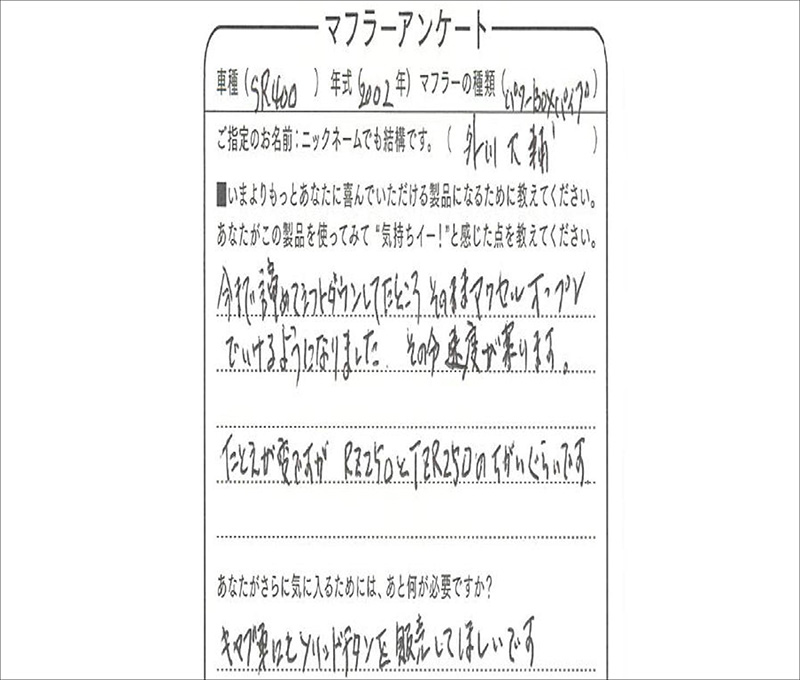 マフラーアンケート
車種(SR400) 年式(2002年) マフラーの種類(パワーBOXパイプ)
ご指定のお名前:ニックネームでも結構です。(外川大輔)
■いまよりもっとあなたに喜んでいただける製品になるために教えてください。
あなたがこの製品を使ってみて“気持ちイー!”と感じた点を教えてください。
今まで諦めてシフトダウンしてたところ そのままアクセルオープン
でいけるようになりました. その分速度が乗ります。
たとえが変ですが RZ250とTZR250のちがいぐらいです.
あなたがさらに気に入るためには、あと何が必要ですか?
キャブ車にもソリッドチタンを販売してほしいです